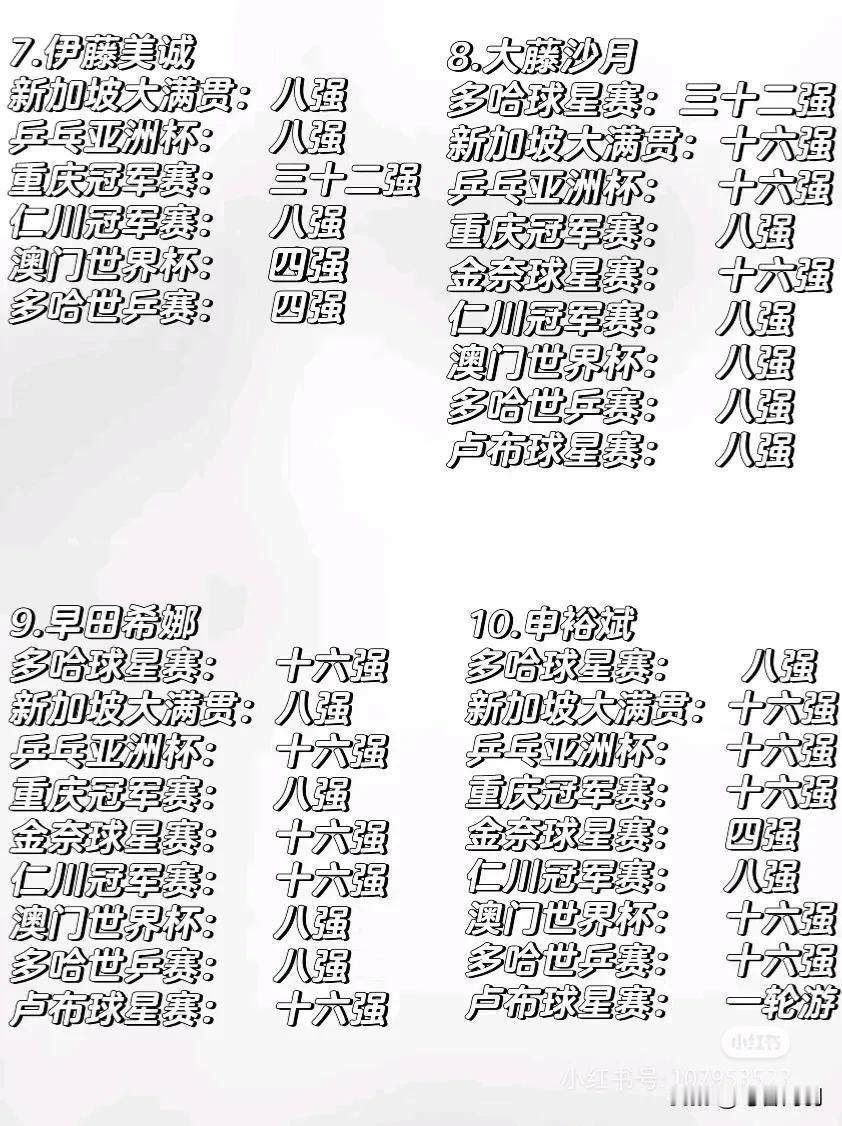 7.伊藤美诚
新加坡大满贯：八强
乒乓亚洲杯：八强
重庆冠军赛：三十二强
仁川冠军赛：八强
澳门世界杯：四强
多哈世乒赛：四强
8.大藤沙月
多哈球星赛：三十二强
新加坡大满贯：十六强
乒乓亚洲杯：十六强
重庆冠军赛：八强
金奈球星赛：十六强
仁川冠军赛：八强
澳门世界杯：八强
多哈世乒赛：八强
卢布球星赛：八强
9.早田希娜
多哈球星赛：十六强
新加坡大满贯：八强
乒乓亚洲杯：十六强
重庆冠军赛：八强
金奈球星赛：十六强
仁川冠军赛：十六强
澳门世界杯：八强
多哈世乒赛：八强
卢布球星赛：十六强
10.申裕斌
多哈球星赛：八强
新加坡大满贯：十六强
乒乓亚洲杯：十六强
重庆冠军赛：十六强
金奈球星赛：四强
仁川冠军赛：八强
澳门世界杯：十六强
多哈世乒赛：十六强
卢布球星赛：一轮游
小红书
小红书号：107953523